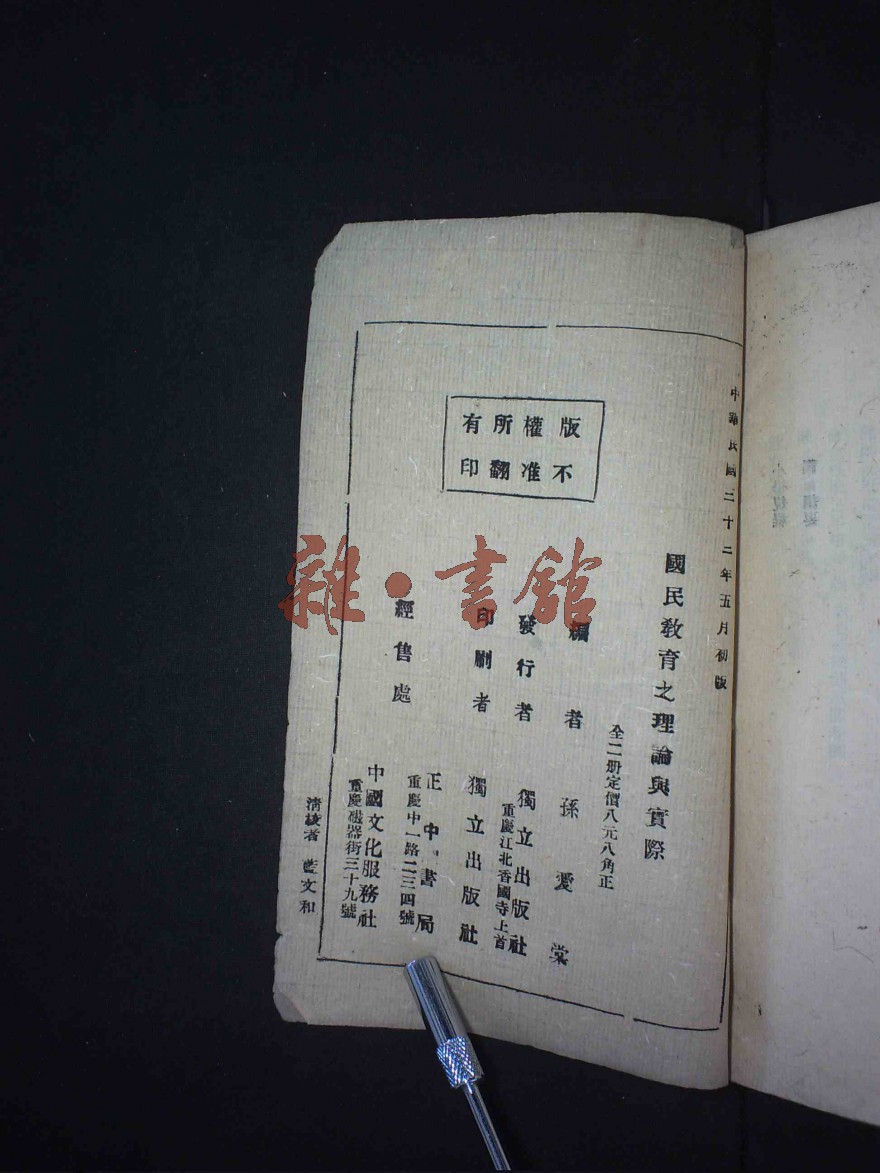 中華民國三十二年五月初版
國民教育之理論與實際
全二册定價八元八角正
版權所有
不准翻印
編者 孫愛棠
發行者 獨立出版社
重慶江北香國寺上首
印刷者 獨立出版社
經售處
正中書局
重慶中一路二三四號
中國文化服務社
重慶磁器街三十九號
清校者 藍文和
雜·書館